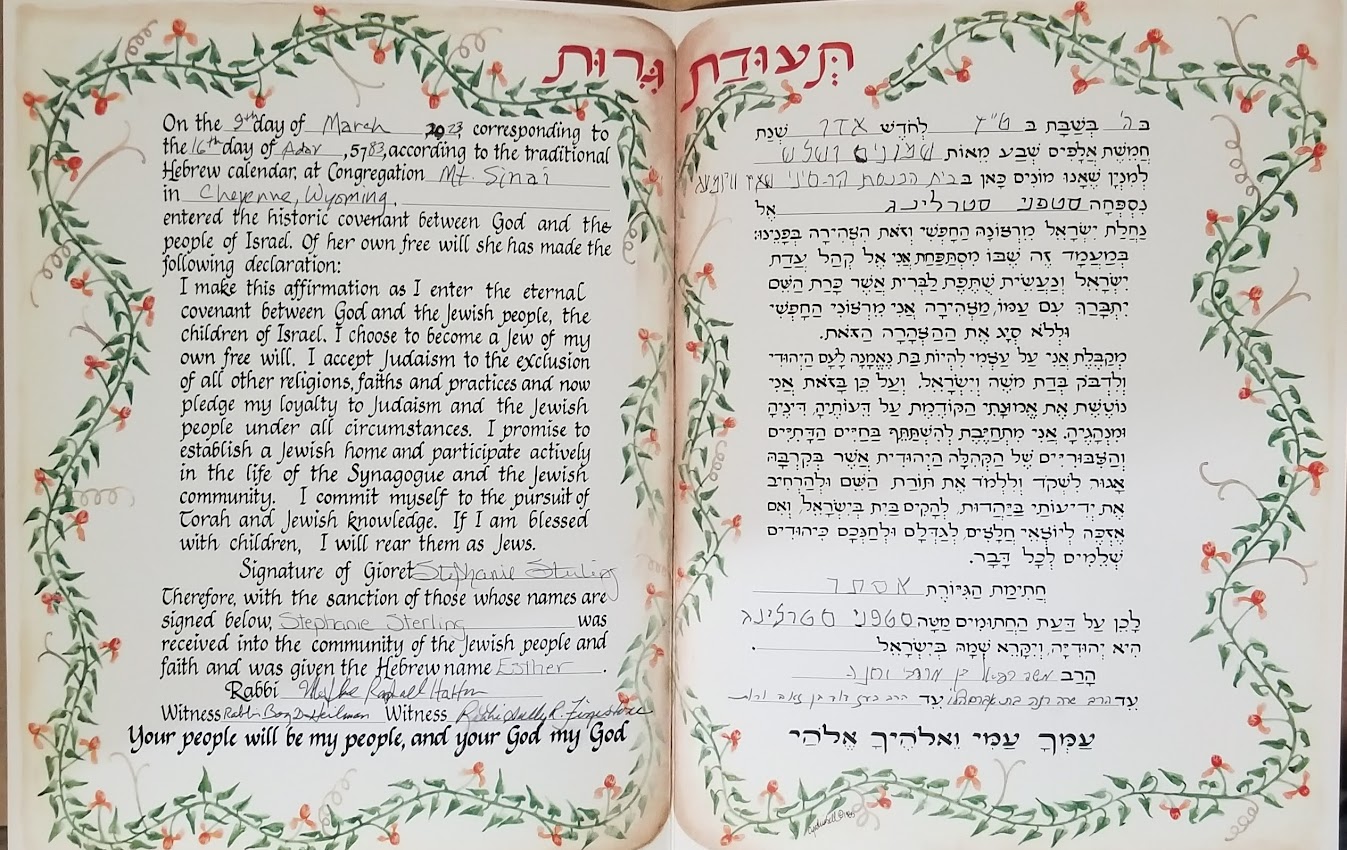 תְּעוּדַת גֵּרוּת
On the 9th day of March, 2023, corresponding to
the 16th day of Adar, 5783, according to the traditional
Hebrew calendar, at Congregation Mt. Sinai
in Cheyenne, Wyoming,
entered the historic covenant between God and the
people of Israel. Of her own free will she has made the
following declaration:
I make this affirmation as I enter the eternal
covenant between God and the Jewish people, the
children of Israel. I choose to become a Jew of my
own free will. I accept Judaism to the exclusion
of all other religions, faiths and practices and now
pledge my loyalty to Judaism and the Jewish
people under all circumstances. I promise to
establish a Jewish home and participate actively
in the life of the Synagogue and the Jewish
community. I commit myself to the pursuit of
Torah and Jewish knowledge. If I am blessed
with children, I will rear them as Jews.
Signature of Gioret Stephanie Sterling
Therefore, with the sanction of those whose names are
signed below, Stephanie Sterling was
received into the community of the Jewish people and
faith and was given the Hebrew name Esther.
Rabbi Raphael
Witness Rabbi Witness Rabbi
Your people will be my people, and your God my God
בְּה' בְּשַׁבָּת בְּט"ז לְחֹדֶשׁ אדר שְׁנַת
חֲמֵשֶׁת אֲלָפִים שְׁבַע מֵאוֹת שמונים ושלש
לְמִנְיָן שֶׁאָנוּ מוֹנִים כָּאן בְּבית הכנסת
נִסְפְּחָה סטפני סטרלינג אֶל
נַחֲלַת יִשְׂרָאֵל מֵרְצוֹנָהּ הַחָפְשִׁי וְזֹאת הִצְהִירָה בְּפָנֵינוּ:
בְּמַעֲמָד זֶה שֶׁבּוֹ מִסְתַּפַּחַת אֲנִי אֶל קְהַל עֲדַת
יִשְׂרָאֵל וְנַעֲשֵׂית שֻׁתֶּפֶת לַבְּרִית אֲשֶׁר כָּרַת הַשֵּׁם
יִתְבָּרַךְ עִם עַמּוֹ, מַצְהִירָה אֲנִי מֵרְצוֹנִי הַחָפְשִׁי
וּלְלֹא סְיָג אֶת הַהַצְהָרָה הַזֹּאת.
מְקַבֶּלֶת אֲנִי עַל עַצְמִי לִהְיוֹת בַּת נֶאֱמָנָה לָעָם הַיְּהוּדִי
וְלִדְבֹּק בְּדַת מֹשֶׁה וְיִשְׂרָאֵל. וְעַל כֵּן בָּזֹאת אֲנִי
נוֹטֶשֶׁת אֶת אֱמוּנָתִי הַקּוֹדֶמֶת עַל דֵּעוֹתֶיהָ, דִּינֶיהָ
וּמִנְהָגֶיהָ. אֲנִי מִתְחַיֶּבֶת לְהִשְׁתַּתֵּף בַּחַיִּים הַדָּתִיִּים
וְהַצִּבּוּרִיִּים שֶׁל הַקְּהִלָּה הַיְּהוּדִית אֲשֶׁר בְּקִרְבָּהּ
אָגוּר לִשְׁקֹד וְלִלְמֹד אֶת תּוֹרַת הַשֵּׁם וּלְהַרְחִיב
אֶת יְדִיעוֹתַי בַּיַּהֲדוּת, לְהָקִים בַּיִת בְּיִשְׂרָאֵל, וְאִם
אֶזְכֶּה לְיוֹצְאֵי חֲלָצַיִם, לְגַדְּלָם וּלְחַנְּכָם כִּיהוּדִים
שְׁלֵמִים לְכָל דָּבָר.
חֲתִימַת הַגִּיּוֹרֶת אסתר
לָכֵן עַל דַּעַת הַחֲתוּמִים מַטָּה סטפני סטרלינג
הִיא יְהוּדִיָּה, וְיִקָּרֵא שְׁמָהּ בְּיִשְׂרָאֵל
הָרַב
עֵד הרב עֵד הרב
עַמֵּךְ עַמִּי וֵאלֹהַיִךְ אֱלֹהָי